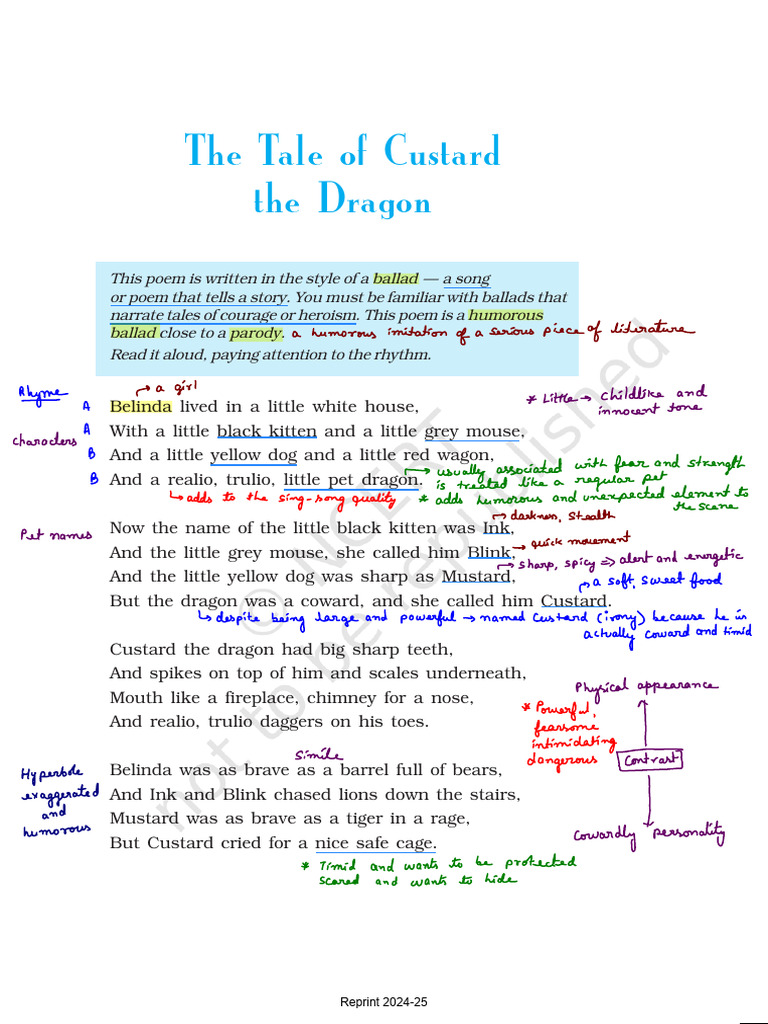 The Tale of Custard
the Dragon
This poem is written in the style of a ballad — a song
or poem that tells a story. You must be familiar with ballads that
narrate tales of courage or heroism. This poem is a humorous
ballad close to a parody. a humorous imitation of a serious piece of literature
Read it aloud, paying attention to the rhythm.
Rhyme
a girl
A Belinda lived in a little white house,
* Little → Childlike and
innocent tone
A With a little black kitten and a little grey mouse,
Characters
B And a little yellow dog and a little red wagon,
B And a realio, trulio, little pet dragon.
usually associated with fear and strength
is treated like a regular pet
adds to the sing-song quality
* adds humorous and unexpected element to
the scene
Pet names
Now the name of the little black kitten was Ink,
darkness, stealth
And the little grey mouse, she called him Blink,
quick movement
And the little yellow dog was sharp as Mustard,
sharp, spicy ⇒ alert and energetic
But the dragon was a coward, and she called him Custard.
a soft, sweet food
despite being large and powerful → named Custard (irony) because he is
actually coward and timid
Custard the dragon had big sharp teeth,
And spikes on top of him and scales underneath,
Mouth like a fireplace, chimney for a nose,
And realio, trulio daggers on his toes.
Physical appearance
* Powerful,
fearsome
intimidating
dangerous
Contrast
Cowardly personality
Simile
Hyperbole
exaggerated
and
humorous
Belinda was as brave as a barrel full of bears,
And Ink and Blink chased lions down the stairs,
Mustard was as brave as a tiger in a rage,
But Custard cried for a nice safe cage.
* Timid and wants to be protected
scared and wants to hide
© NCERT
not to be republished
Reprint 2024-25